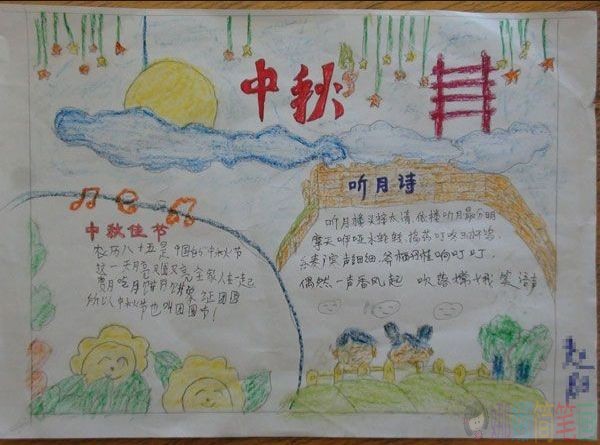 中秋
听月诗
听月楼头接太清,依楼听月最分明
摩天咿哑冰轮转,捣药叮咚玉杵鸣
乐奏广寒声细细,斧柯丹桂响叮叮,
偶然一声香风起 吹落嫦娥笑语声
中秋佳节
农历八十五是中国的中秋节
这一天月亮又圆又亮,全家人在一起
赏月吃月饼月饼象征团圆
所以中秋节也叫团圆节!